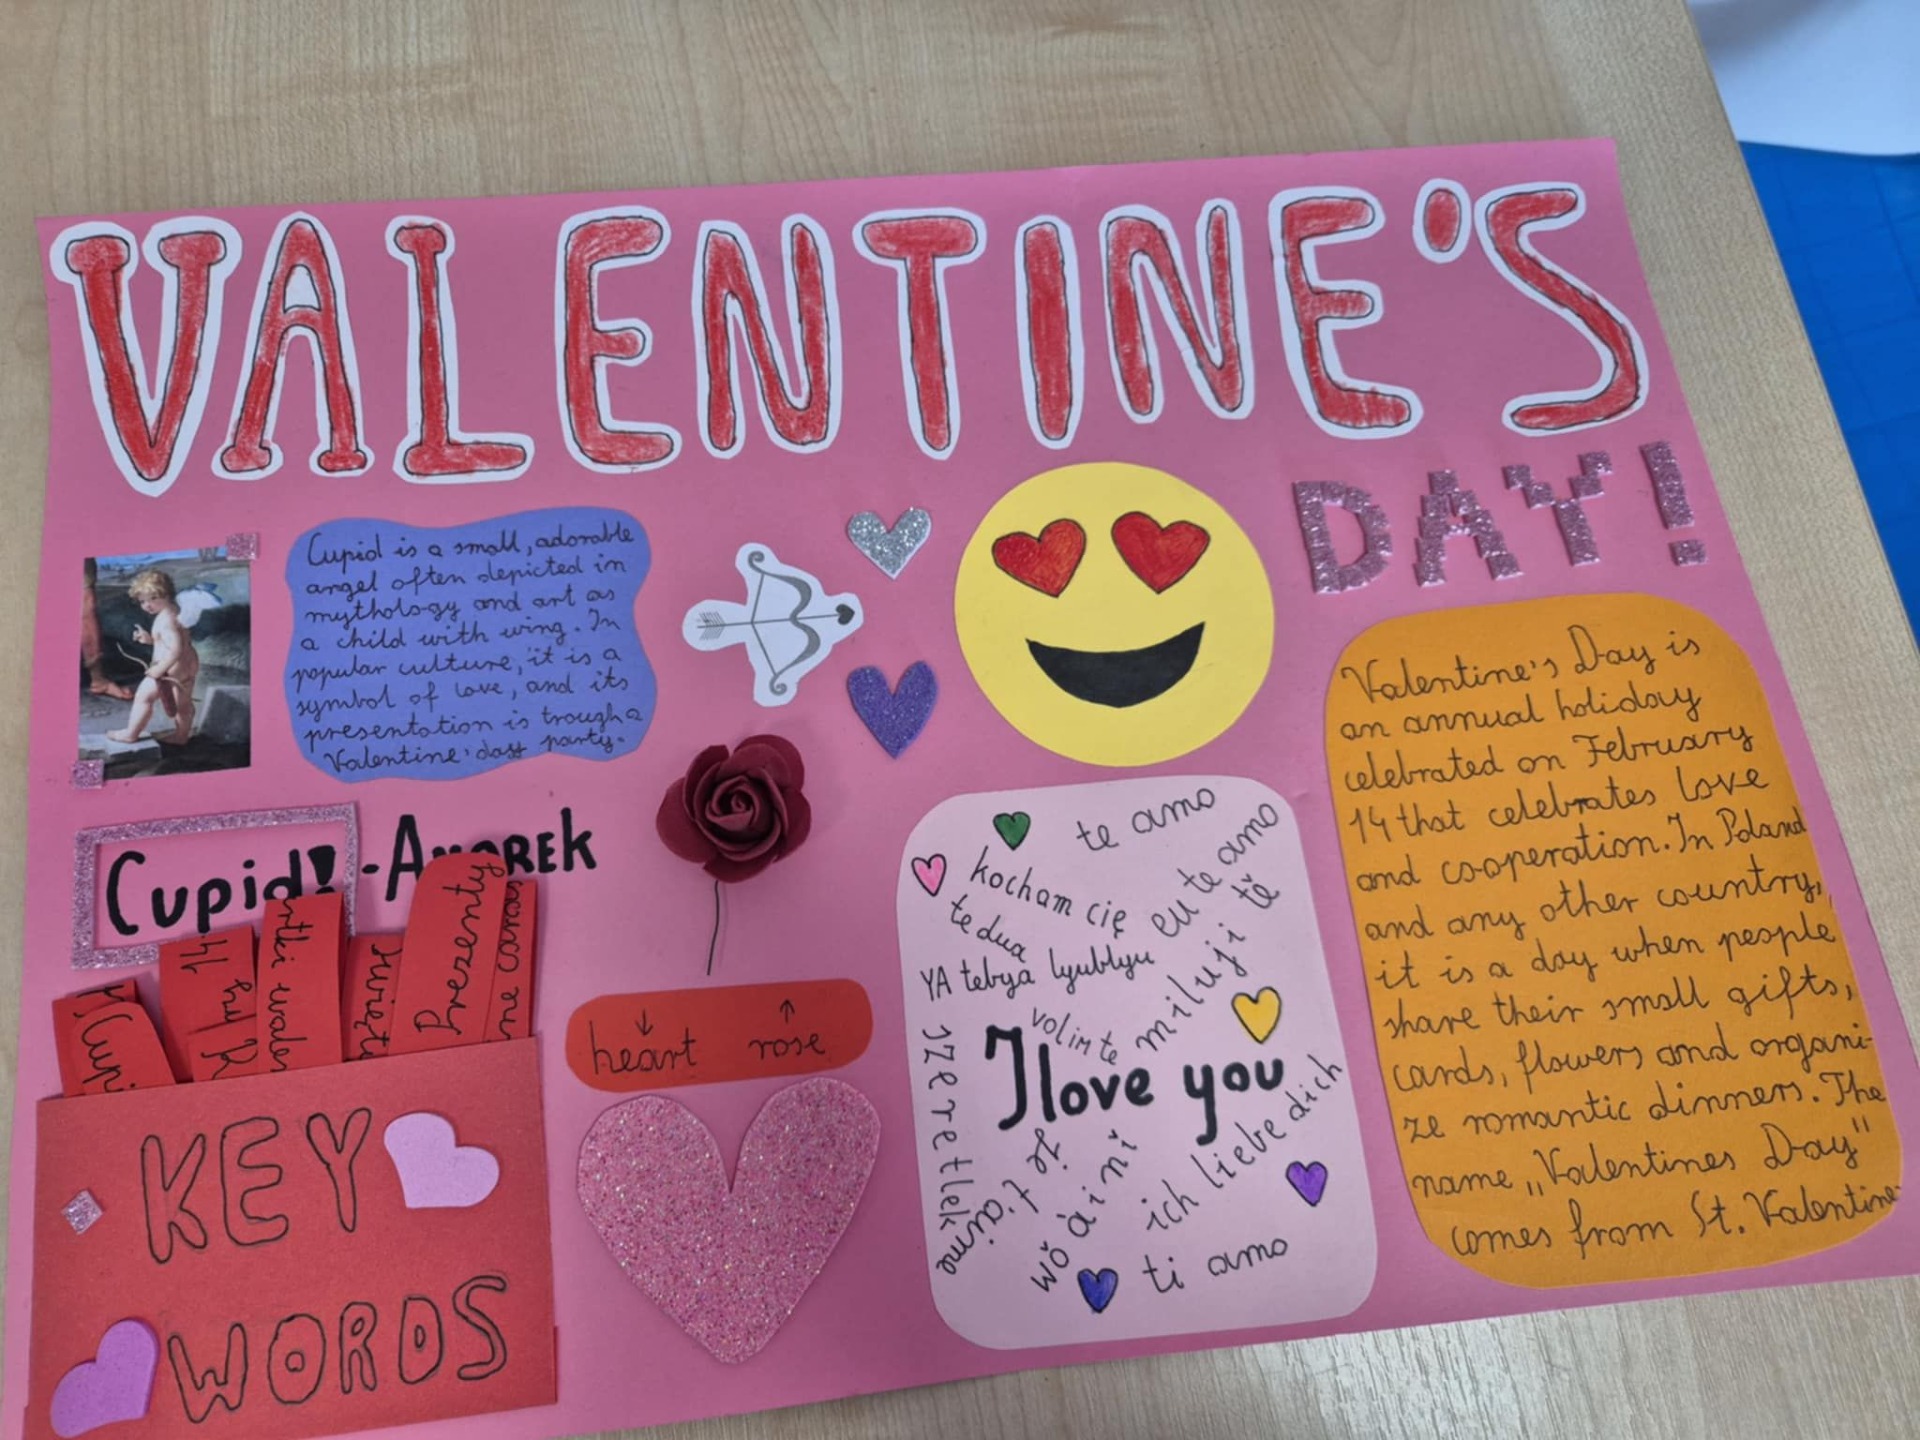 VALENTINE'S
DAY!
Cupid is a small, adorable
angel often depicted in
mythology and art as
a child with wing. In
popular culture, it is a
symbol of love, and its
presentation is trough a
Valentine'day party.
Cupid! - AMOREK
Prezenty
KEY
WORDS
heart rose
te amo
kocham cię
eu te amo
te dua
YA tebya lyublyu
miluji tě
volim te
I love you
szeretlek
je t'aime
wǒ ài nǐ
ich liebe dich
ti amo
Valentine's Day is
an annual holiday
celebrated on February
14 that celebrates love
and cooperation. In Poland
and any other country,
it is a day when people
share their small gifts,
cards, flowers and organi-
ze romantic dinners. The
name „Valentines Day"
comes from St. Valentine.